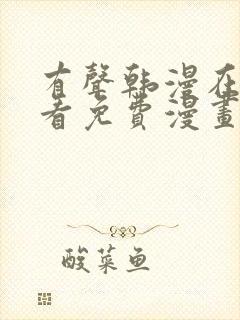 有聲韩漫在
看免费漫畫
酸菜鱼